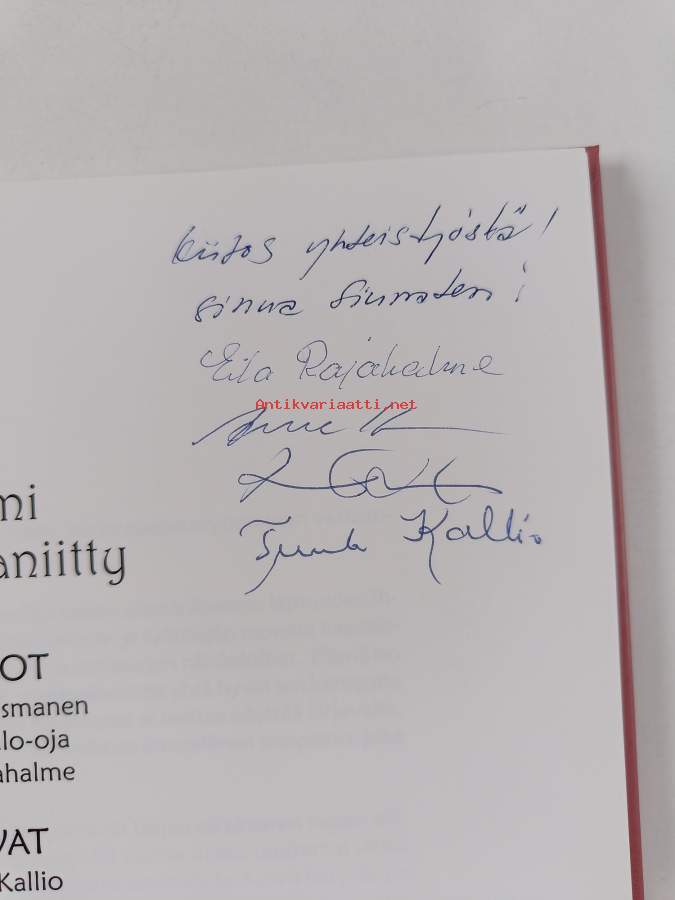 Kiitos yhteistyöstä!
sinua siunaten!
Eila Rajahalme
Antikvariaatti.net
Kallio
mi
aniitty
OT
smanen
lo-oja
ahalme
VAT
Kallio